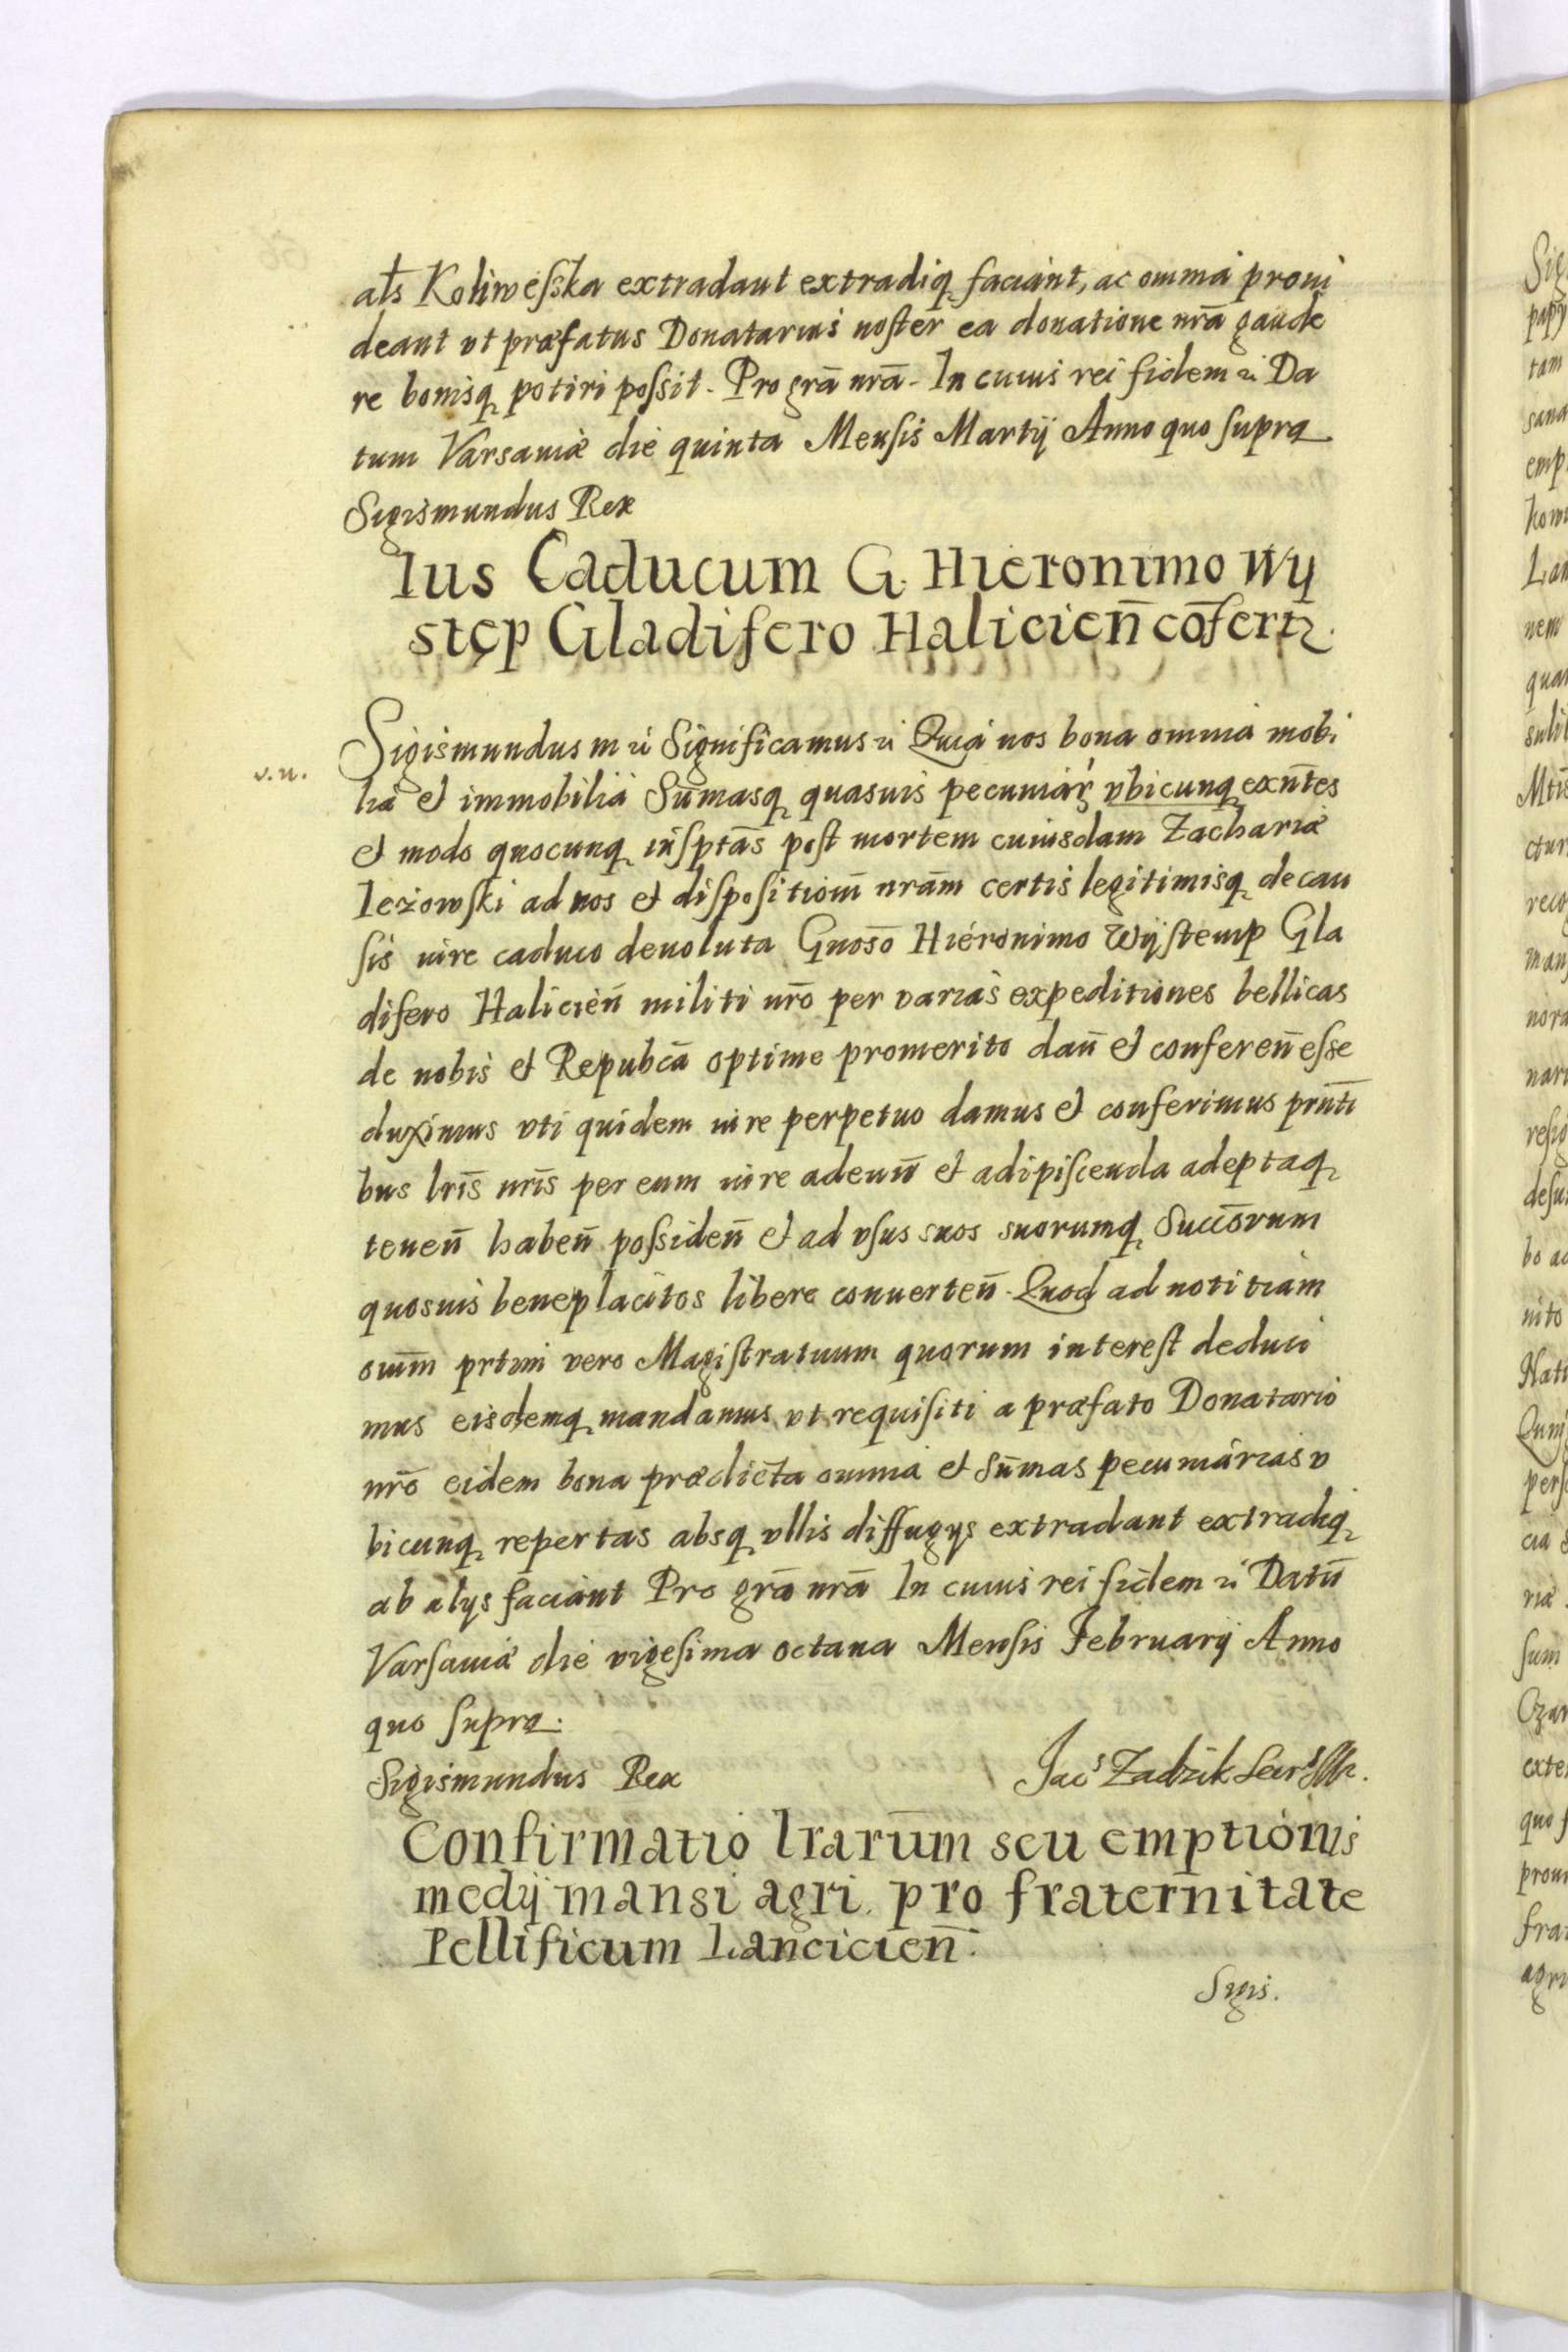 ats Koliwesska extradant extradiq, faciant, ac omnia proui
deant vt præfatus Donatarius noster ea donatione nrā gaude
re bonisq, potiri possit. Pro grā nrā. In cuius rei fidem Da
tum Varsauiæ die quinta Mensis Martij Anno quo supra
Sigismundus Rex
Ius Caducum G. Hieronimo Wy
stęp Gladifero Halicień cōfert.
Sigismundus Significamus Quia nos bona omnia mobi
v. u.
lia et immobilia Sūmasq, quasuis pecuniar vbicunq, exn̄tes
et modo quocunq, insptās post mortem cuiusdam Zachariæ
Ieżowski ad nos et dispositiom̄ nrām certis legitimisq, de cau
sis iure caduco deuoluta Gnosō Hieronimo Wijstemp Gla
difero Halicień militi nrō per varias expeditiones bellicas
de nobis et Repubcā optime promerito dan̄ et conferen̄ esse
duximus vti quidem iure perpetuo damus et conferimus prn̄ti
bus lrīs nrīs per eum iure adeun̄ et adipiscenda adeptaq,
tenen̄ haben̄ possiden̄ et ad vsus suos suorumq, Succōrum
quosuis beneplacitos libere conuerten̄. Quod ad notitiam
oium̄ prtim vero Magistratuum quorum interest deduci
mus eisdemq, mandamus vt requisiti a præfato Donatario
nrō eidem bona prædicta omnia et Sūmas pecuniarias v
bicunq, repertas absq, vllis diffugys extradant extradiq,
ab alys faciant Pro grā nrā In cuius rei fidem Datū
Varsauiæ die vigesima octaua Mensis Februarij Anno
quo supra.
Sigismundus Rex Jacs Zadzik Secrs
Confirmatio lrarūm seu emptionis
medij mansi agri pro fraternitate
Pellificum Lancicień.
Sigis.